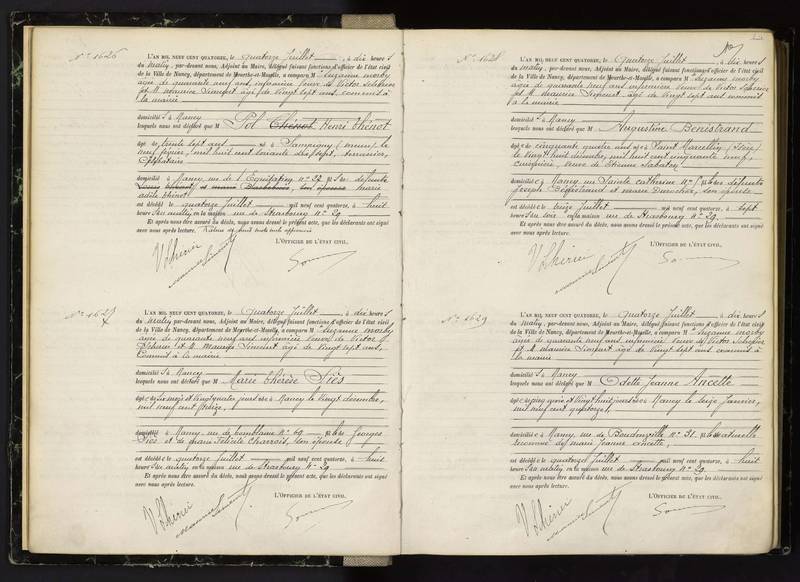 N° 1626
L'AN MIL NEUF CENT QUATORZE, le quatorze Juillet, à dix heures
du matin, par-devant nous, Adjoint au Maire, délégué faisant fonctions d'officier de l'état civil
de la Ville de Nancy, département de Meurthe-et-Moselle, a comparu M Suzanne
agée de quarante neuf ans infirmière veuve de Victor
et Maurice âgé de vingt sept ans, commis à
la mairie
domiciliés à Nancy
lesquels nous ont déclaré que M Pol Thénot Henri Thénot
âgé de trente sept ans né à Sampigny (Meuse) le
neuf février, mil huit cent soixante dix sept, terrassier,
célibataire
domicilié à Nancy, rue de l'Equitation n° 22 fils de défunte
Marie
Thénot
est décédé le quatorze Juillet mil neuf cent quatorze, à huit
heures du matin en la maison rue de Strasbourg n° 29
Et après nous être assuré du décès, nous avons dressé le présent acte, que les déclarants ont signé
avec nous après lecture.
L'OFFICIER DE L'ÉTAT CIVIL,
N° 1627
L'AN MIL NEUF CENT QUATORZE, le quatorze Juillet, à dix heures
du matin, par-devant nous, Adjoint au Maire, délégué faisant fonctions d'officier de l'état civil
de la Ville de Nancy, département de Meurthe-et-Moselle, a comparu M Suzanne
agée de quarante neuf ans infirmière veuve de Victor
et Maurice âgé de vingt sept ans,
commis à la mairie
domiciliés à Nancy
lesquels nous ont déclaré que M Marie Thérèse Siès
âgée de six mois et vingt quatre jours née à Nancy le vingt décembre,
mil neuf cent treize,
domiciliée à Nancy, rue de n° 69 fille de Georges
Siès et de Marie Félicité Charrois, son épouse
est décédée le quatorze Juillet mil neuf cent quatorze, à huit
heures du matin en la maison rue de Strasbourg n° 29
Et après nous être assuré du décès, nous avons dressé le présent acte, que les déclarants ont signé
avec nous après lecture.
L'OFFICIER DE L'ÉTAT CIVIL,
N° 1628
L'AN MIL NEUF CENT QUATORZE, le quatorze Juillet, à dix heures
du matin, par-devant nous, Adjoint au Maire, délégué faisant fonctions d'officier de l'état civil
de la Ville de Nancy, département de Meurthe-et-Moselle, a comparu M Suzanne
agée de quarante neuf ans infirmière veuve de Victor
et Maurice âgé de vingt sept ans commis
à la mairie
domiciliés à Nancy
lesquels nous ont déclaré que M Augustine Benistrand
âgée de cinquante quatre ans née à Saint Marcellin (Isère)
le vingt huit décembre, mil huit cent cinquante neuf,
cuisinière, veuve de Etienne Sabatery
domiciliée à Nancy, rue Sainte Catherine fille des défunts
Joseph Benistrand et Marie son épouse
est décédée le treize Juillet mil neuf cent quatorze, à sept
heures du soir en la maison rue de Strasbourg n° 29
Et après nous être assuré du décès, nous avons dressé le présent acte, que les déclarants ont signé
avec nous après lecture.
L'OFFICIER DE L'ÉTAT CIVIL,
N° 1629
L'AN MIL NEUF CENT QUATORZE, le quatorze Juillet, à dix heures
du matin, par-devant nous, Adjoint au Maire, délégué faisant fonctions d'officier de l'état civil
de la Ville de Nancy, département de Meurthe-et-Moselle, a comparu M Suzanne
agée de quarante neuf ans infirmière veuve de Victor
et Maurice âgé de vingt sept ans commis à
la mairie
domiciliés à Nancy
lesquels nous ont déclaré que M Odette Jeanne Ancette
âgée de cinq mois et vingt huit jours née à Nancy le seize Janvier,
mil neuf cent quatorze,
domiciliée à Nancy, rue de Boudonville n° 31 fille naturelle
reconnue de Marie Jeanne Ancette,
est décédée le quatorze Juillet mil neuf cent quatorze, à huit
heures du matin en la maison rue de Strasbourg n° 29
Et après nous être assuré du décès, nous avons dressé le présent acte, que les déclarants ont signé
avec nous après lecture.
L'OFFICIER DE L'ÉTAT CIVIL,